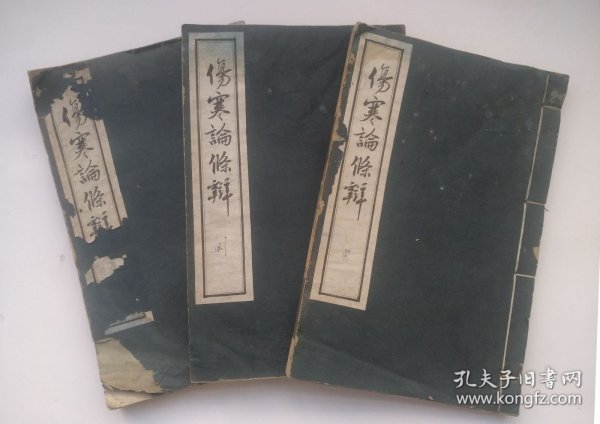 傷寒論條辯
傷寒論條辯
傷寒論條辯
孔夫子旧書网
www.kongfz.com